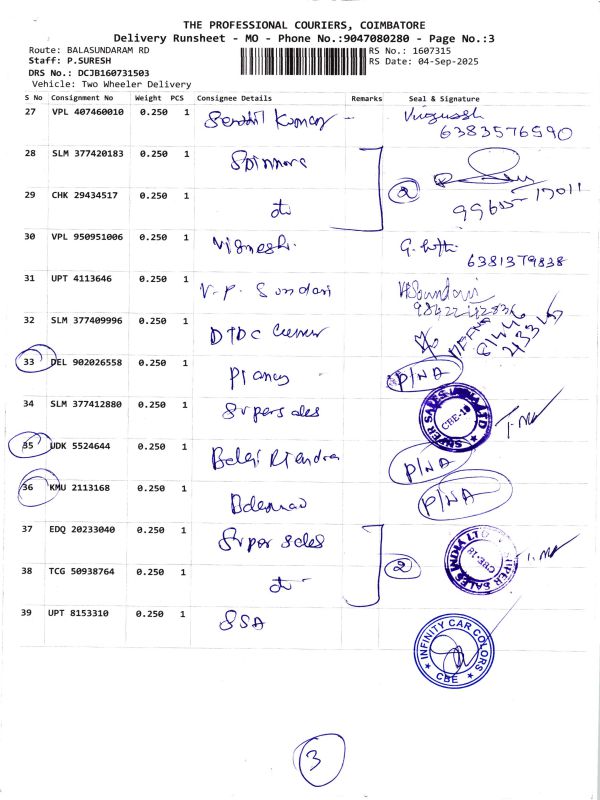 THE PROFESSIONAL COURIERS, COIMBATORE
Delivery Runsheet - MO - Phone No.:9047080280 - Page No.:3
Route: BALASUNDARAM RD RS No.: 1607315
Staff: P.SURESH RS Date: 04-Sep-2025
DRS No.: DCJB160731503
Vehicle: Two Wheeler Delivery
S No Consignment No Weight PCS Consignee Details Remarks Seal & Signature
27 VPL 407460010 0.250 1 Senthil Kumar -
6383576590
28 SLM 377420183 0.250 1 Spinners
29 CHK 29434517 0.250 1 do 2
30 VPL 950951006 0.250 1 Vignesh.
6381379838
31 UPT 4113646 0.250 1 V.P. Sundari V.P.Soundari
32 SLM 377409996 0.250 1 DTDC Courier
33 DEL 902026558 0.250 1 P/NA
34 SLM 377412880 0.250 1 Super sales SUPER SALES INDIA LTD CBE-18
35 UDK 5524644 0.250 1 P/NA
36 KMU 2113168 0.250 1 P/NA
37 EDQ 20233040 0.250 1 Super sales SUPER SALES INDIA LTD CBE-18
38 TCG 50938764 0.250 1 do 2
39 UPT 8153310 0.250 1 SSA INFINITY CAR COLORS CBE
3